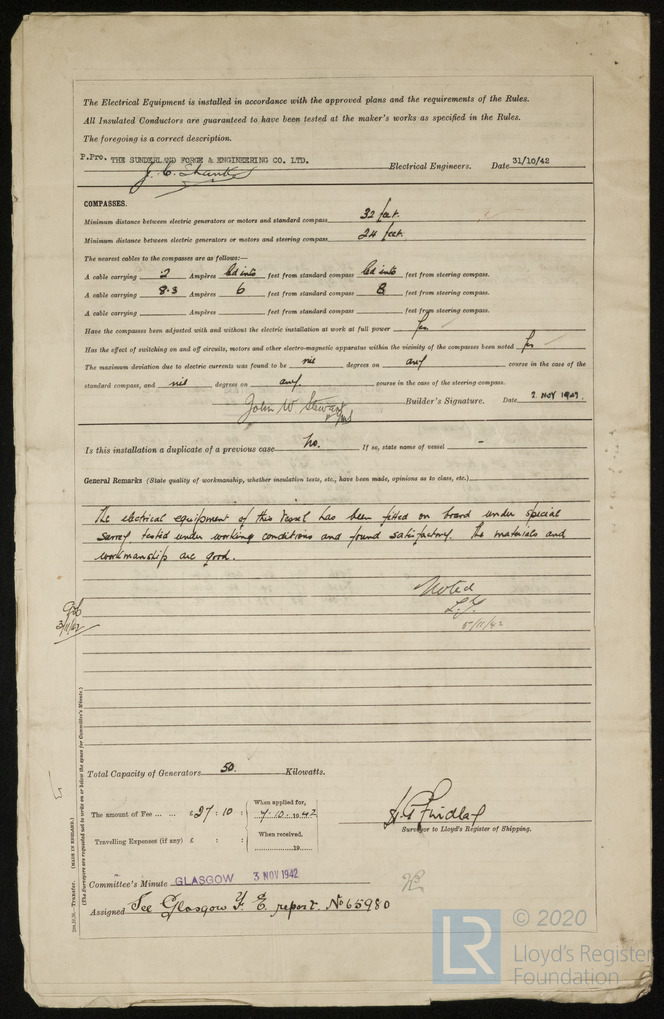 The Electrical Equipment is installed in accordance with the approved plans and the requirements of the Rules.
All Insulated Conductors are guaranteed to have been tested at the maker's works as specified in the Rules.
The foregoing is a correct description.
P.Pro. THE SUNDERLAND FORGE & ENGINEERING CO. LTD. Electrical Engineers. Date 31/10/42
COMPASSES.
Minimum distance between electric generators or motors and standard compass 32 feet.
Minimum distance between electric generators or motors and steering compass 24 feet.
The nearest cables to the compasses are as follows:—
A cable carrying 2 Ampères led into feet from standard compass led into feet from steering compass.
A cable carrying 8.3 Ampères 6 feet from standard compass 8 feet from steering compass.
A cable carrying Ampères feet from standard compass feet from steering compass.
Have the compasses been adjusted with and without the electric installation at work at full power Yes
Has the effect of switching on and off circuits, motors and other electro-magnetic apparatus within the vicinity of the compasses been noted Yes
The maximum deviation due to electric currents was found to be nil degrees on any course in the case of the
standard compass, and nil degrees on any course in the case of the steering compass.
John W Stewart Builder's Signature. Date 2 NOV 1942.
Is this installation a duplicate of a previous case No. If so, state name of vessel -
General Remarks (State quality of workmanship, whether insulation tests, etc., have been made, opinions as to class, etc.)
The electrical equipment of this vessel has been fitted on board under special
survey, tested under working conditions and found satisfactory. The materials and
workmanship are good.
Noted
5/11/42
3/11/42
Total Capacity of Generators 50. Kilowatts.
The amount of Fee ... ... £27 : 10 :
When applied for,
7.10.1942
Travelling Expenses (if any) £ : :
When received.
19
Findlay
Surveyor to Lloyd's Register of Shipping.
Committee's Minute GLASGOW 3 NOV 1942
Assigned See Glasgow F.E. report. No 65980
(MADE IN ENGLAND.)
(The Surveyors are requested not to write on or below the space for Committee's Minute.)
LR
© 2020
Lloyd's Register
Foundation